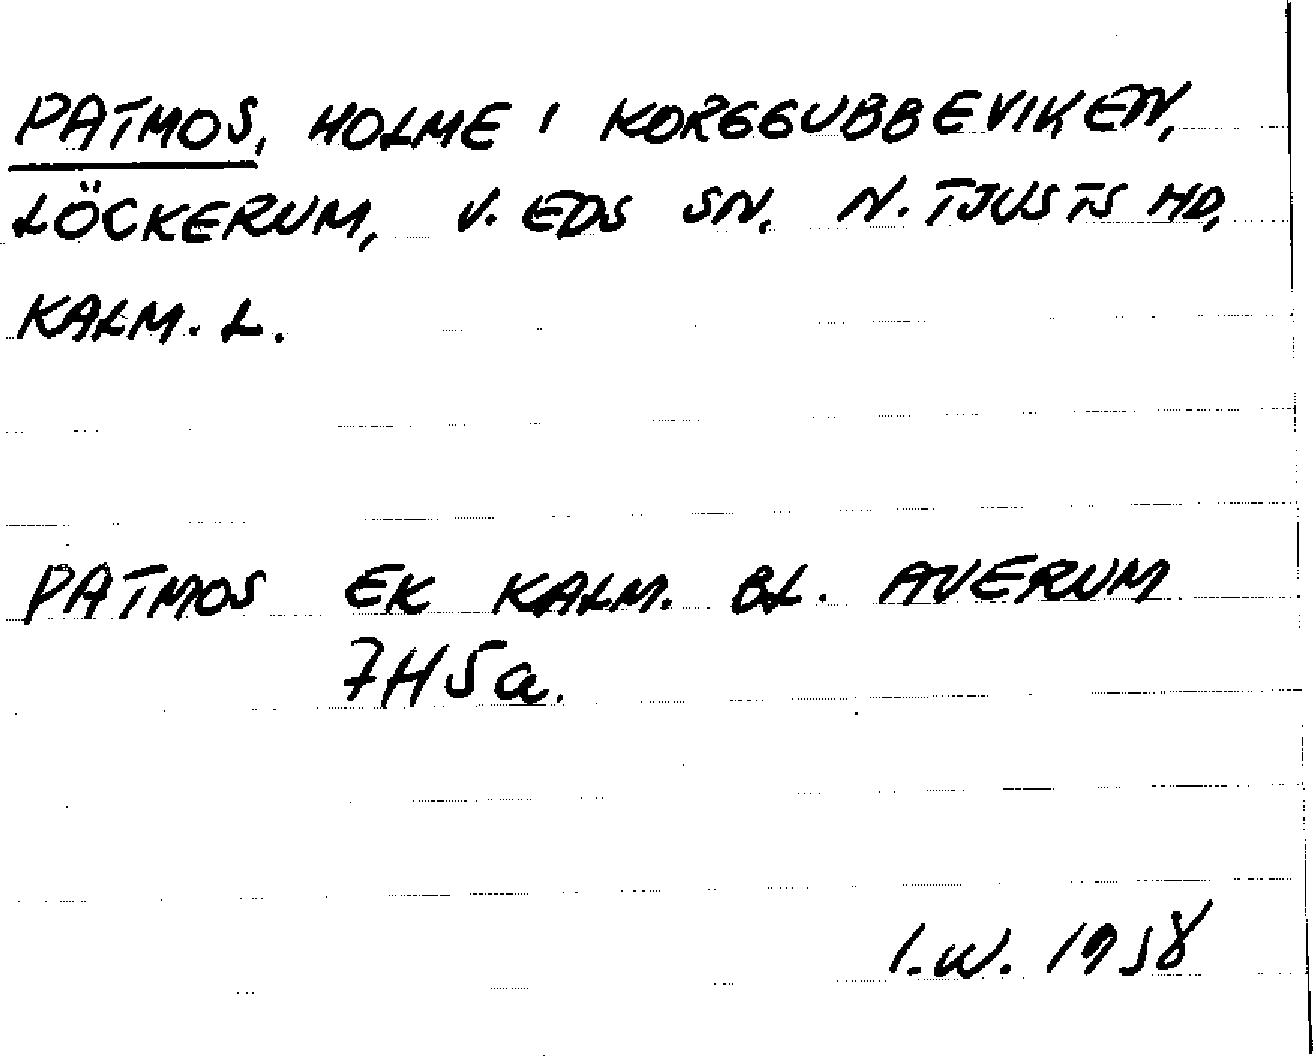 PATMOS, HOLME I KORGGUBBEVIKEN,
LÖCKERUM, V. EDS SN. N. TJUSTS HD,
KALM. L.
PATMOS EK KALM. BL. ÅVERUM
7H5a.
I.W. 1958